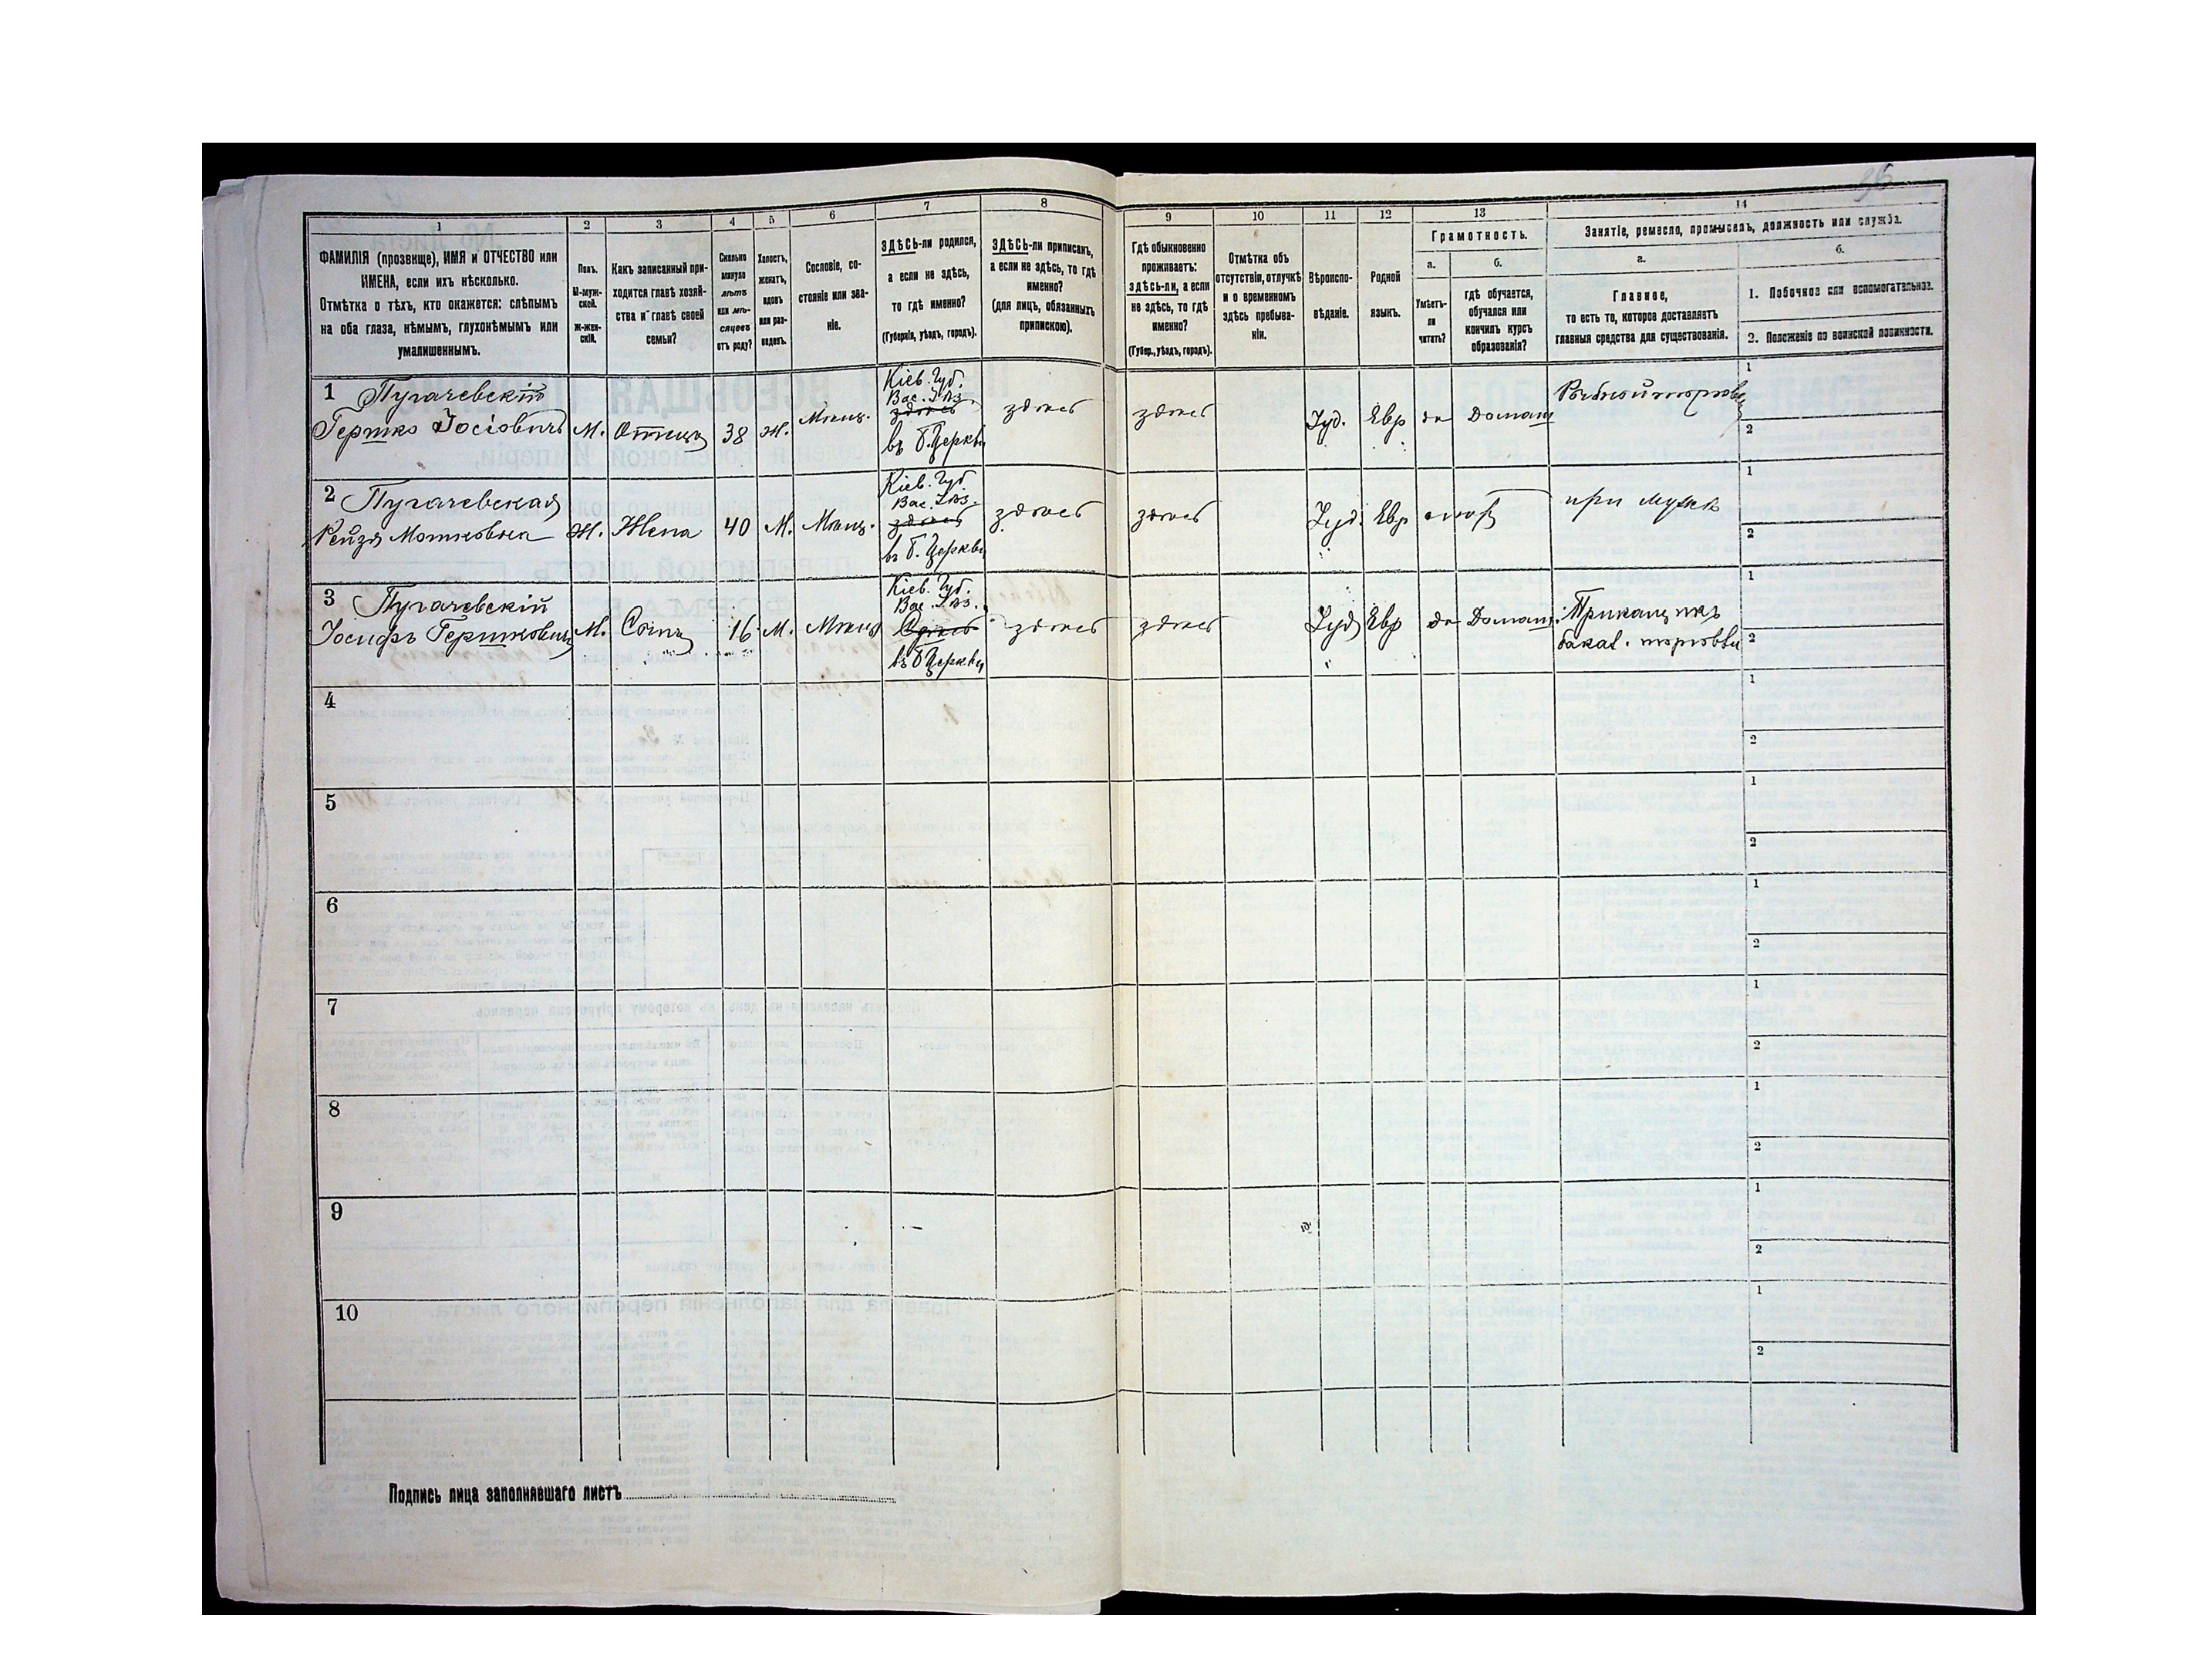 36
1 2 3 4 5 6 7 8 9 10 11 12 13 14
ФАМИЛІЯ (прозвище), ИМЯ и ОТЧЕСТВО или
ИМЕНА, если ихъ нѣсколько.
Отмѣтка о тѣхъ, кто окажется: слѣпымъ
на оба глаза, нѣмымъ, глухонѣмымъ или
умалишеннымъ.
Полъ.
М-муж-
ской.
Ж-жен-
скій.
Какъ записанный при-
ходится главѣ хозяй-
ства и главѣ своей
семьи?
Сколько
минуло
лѣтъ
или мѣ-
сяцевъ
отъ роду?
Холостъ,
женатъ,
вдовъ
или раз-
веденъ.
Сословіе, со-
стояніе или зва-
ніе.
ЗДѢСЬ-ли родился,
а если не здѣсь,
то гдѣ именно?
(Губернія, уѣздъ, городъ).
ЗДѢСЬ-ли приписанъ,
а если не здѣсь, то гдѣ
именно?
(для лицъ, обязанныхъ
припискою).
Гдѣ обыкновенно
проживаетъ:
здѣсь-ли, а если
не здѣсь, то гдѣ
именно?
(Губер., уѣздъ, городъ).
Отмѣтка объ
отсутствіи, отлучкѣ
и о временномъ
здѣсь пребыва-
ніи.
Вѣроиспо-
вѣданіе.
Родной
языкъ.
Грамотность.
а.
Умѣетъ-
ли
читать?
б.
гдѣ обучается,
обучался или
кончилъ курсъ
образованія?
Занятіе, ремесло, промыселъ, должность или служба.
а.
Главное,
то есть то, которое доставляетъ
главныя средства для существованія.
б.
1. Побочное или вспомогательное.
2. Положеніе по воинской повинности.
1 Пугачевскій
Гершко Іосіовичъ
М.
Отецъ
38
Ж.
Мѣщ.
Кіев. Губ.
Вас. Уѣз.
здѣсь
въ Б. Церкви
здѣсь
здѣсь
Іуд.
Евр
да
Домаш
1
2
2 Пугачевская
Рейзя Мошковна
Ж.
Жена
40
М.
Мѣщ.
Кіев. Губ
Вас. Уѣз.
здѣсь
въ Б. Церкви
здѣсь
здѣсь
Іуд.
Евр
при мужѣ
1
2
3 Пугачевскій
Іосифъ Гершковичъ
М.
Сынъ
16
М.
Мѣщ
Кіев. Губ.
Вас. Уѣз.
Здѣсь
въ Б Церкви
здѣсь
здѣсь
Іуд
Евр
да
Домаш.
Приказчикъ
бакал. торговли
1
2
4
1
2
5
1
2
6
1
2
7
1
2
8
1
2
9
1
2
10
1
2
Подпись лица заполнявшаго листъ